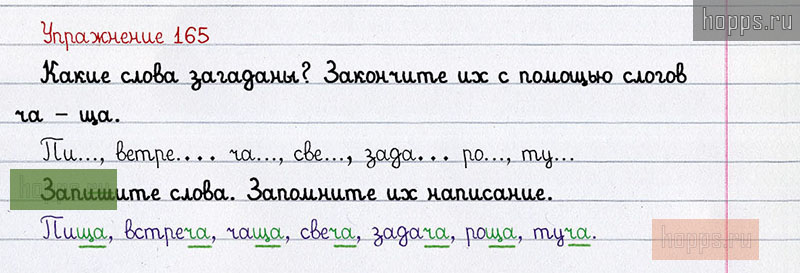 hopps.ru
Упражнение 165
Какие слова загаданы? Закончите их с помощью слогов
ча – ща.
Пи..., ветре.... ча..., све..., зада... ро..., ту...
Запишите слова. Запомните их написание.
Пища, встреча, чаща, свеча, задача, роща, туча.
hopps.ru